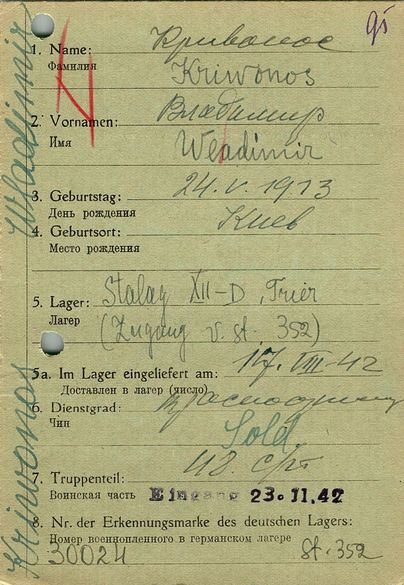 95
Kriwonos Wladimir
1. Name: Кривонос
Фамилия Kriwonos
2. Vornamen: Владимир
Имя Wladimir
3. Geburtstag: 24. V. 1913
День рождения
4. Geburtsort: Киев
Место рождения
5. Lager: Stalag XII-D, Trier
Лагерь (Zugang v. St. 352)
5a. Im Lager eingeliefert am: 17. VIII-42
Доставлен в лагерь (число)
6. Dienstgrad: Красноармеец
Чин Sold.
7. Truppenteil:
Воинская часть Eingang 23.11.42
8. Nr. der Erkennungsmarke des deutschen Lagers:
Номер военнопленного в германском лагере
30024 St. 352